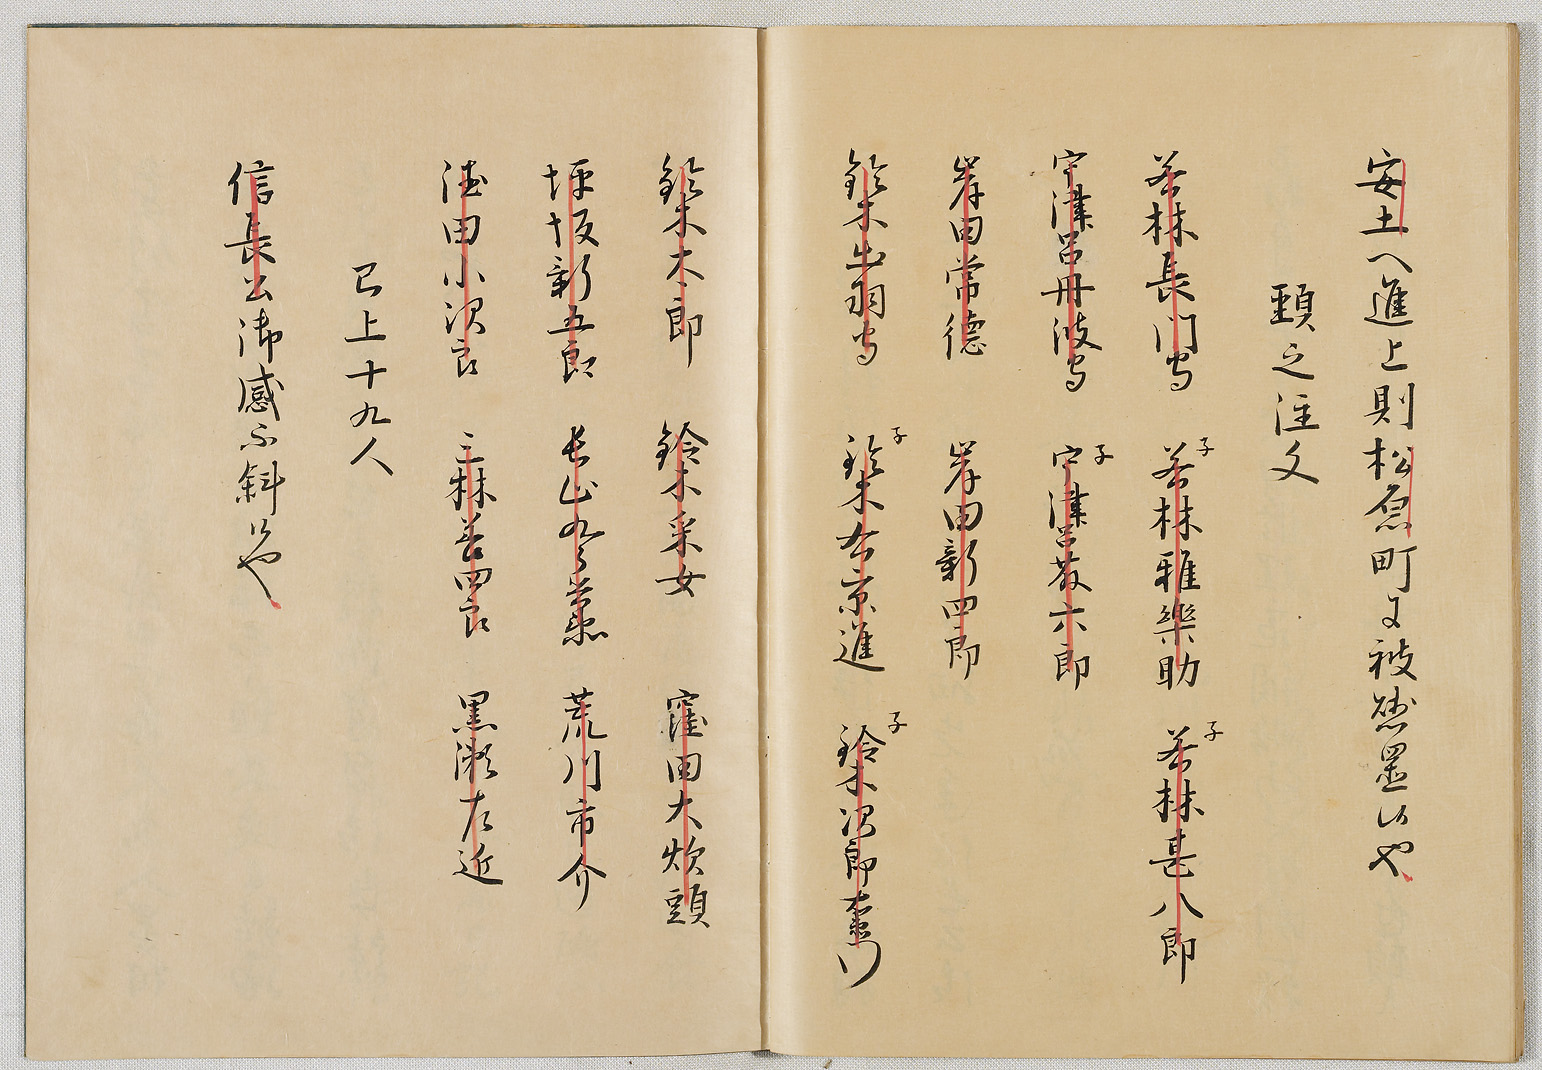 安土へ進上則松原町に被懸置候や
頸之注文
若林長門守 子 若林雅樂助 子 若林甚八郎
宇津呂丹波守 子 宇津呂藤六郎
岸田常德 岸田新四郎
鈴木出羽守 子 鈴木右京進 子 鈴木次郎右衞門
鈴木太郎 鈴木采女 窪田大炊頭
坪坂新五郎 長山九郎兵衞 荒川市介
德田小次郎 三林善四郎 黒瀬左近
已上十九人
信長公御感不斜候や